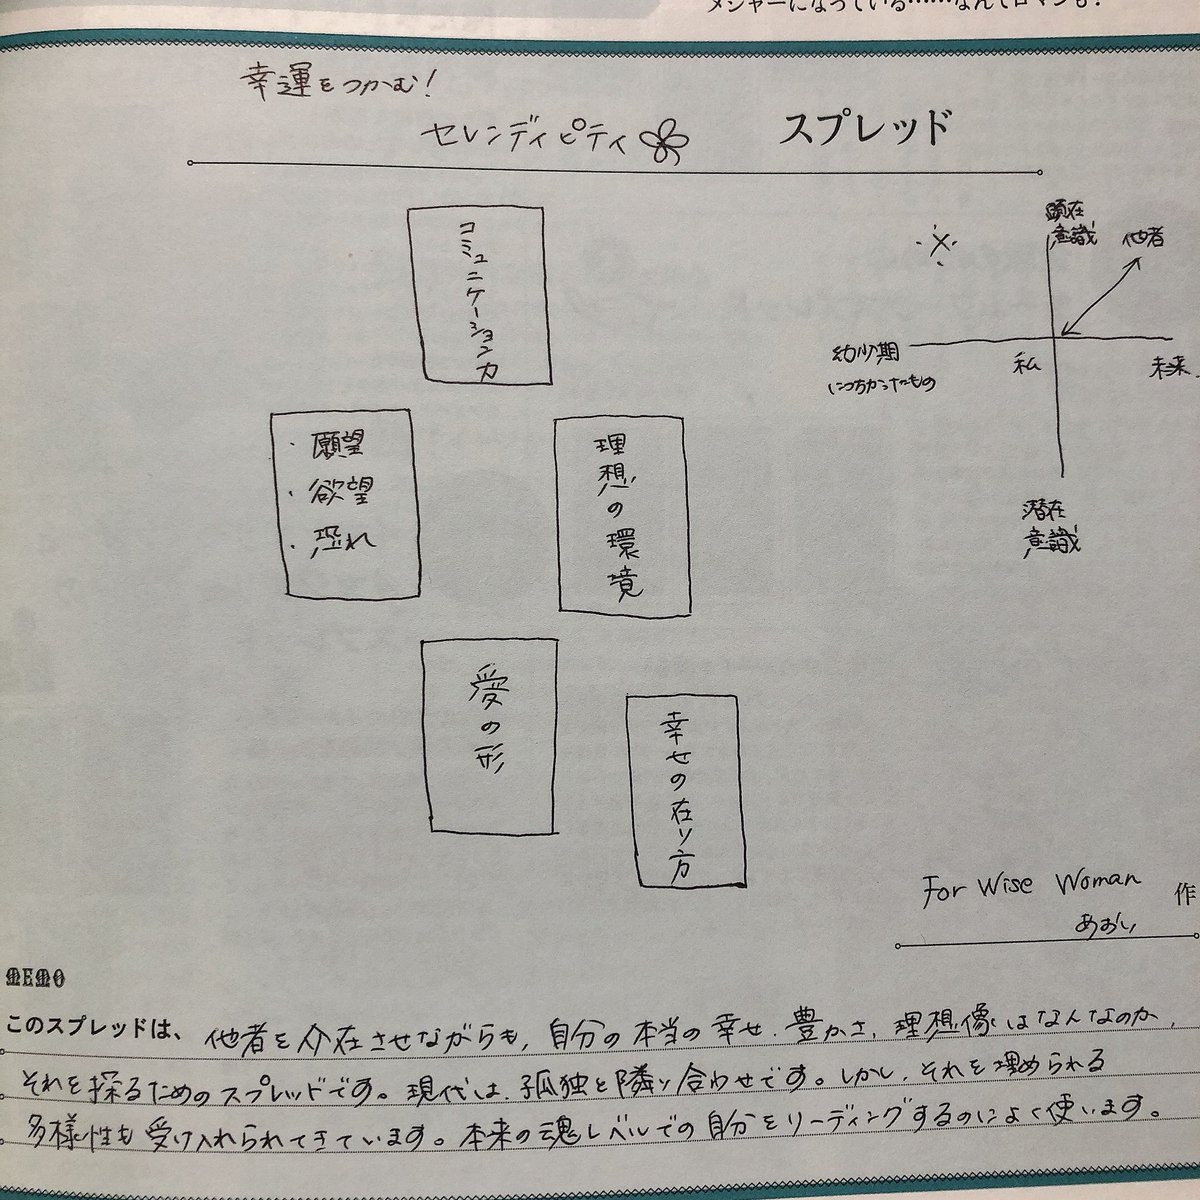 メジャーになっている……なんてロマンも!
幸運をつかむ!
セレンディピティ スプレッド
コミュニケーション力
・願望
・欲望
・恐れ
理想の環境
愛の形
幸せの在り方
顕在
意識
他者
幼少期
につちかったもの
私
未来
潜在
意識
For Wise Woman 作
あおい
MEMO
このスプレッドは、他者を介在させながらも、自分の本当の幸せ、豊かさ、理想像はなんなのか、
それを探るためのスプレッドです。現代は、孤独と隣り合わせです。しかし、それを埋められる
多様性も受け入れられてきています。本来の魂レベルでの自分をリーディングするのによく使います。